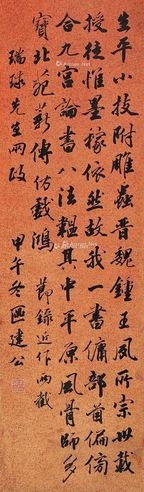 生平小技附雕蟲晋魏鍾王夙所宗卅載
授徒惟墨稼依然故我一書傭部首偏傍
合九宮論書八法韞其中平原風骨師多
寶北苑薪傳仿戲鴻 節錄近作兩截
瑞球先生兩政 甲午冬區建公